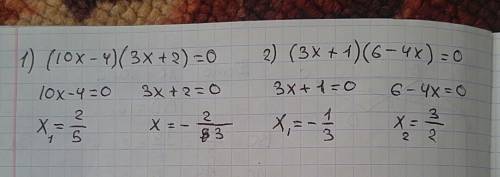 1) (10x-4)(3x+2)=0 2) (3x+1)(6-4x)=0
10x-4=0 3x+2=0 3x+1=0 6-4x=0
x₁=2/5 x=-2/3 x₁=-1/3 x₂=3/2